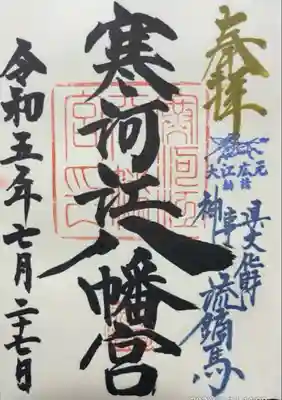 奉拝
大江広元
県文化財
神事
流鏑馬
寒河江八幡宮
令和五年七月二十七日